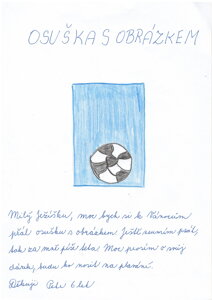 OSUŠKA S OBRÁZKEM
Milý Ježíšku, moc bych si k Vánocům
přál osušku s obrázkem. Ještě neumím psát,
tak za mě píše teta. Moc prosím o můj
dárek, budu ho nosit na plavání.
Děkuji Petr 6 let